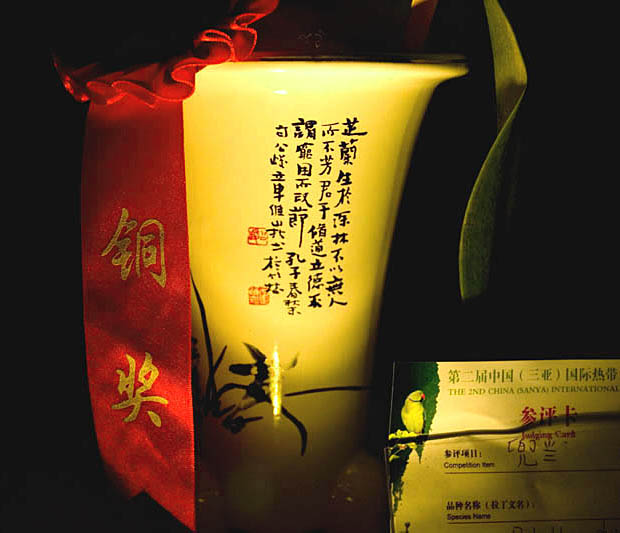 铜奖
芝蘭生於深林不以無人
而不芳君子脩道立德不
謂窮困而改節 孔子春秋
第二届中国（三亚）国际热带
THE 2ND CHINA (SANYA) INTERNATIONAL
参评卡
Judging Card
参评项目： 兜兰
Competition Item
品种名称（拉丁文名）：
Species Name